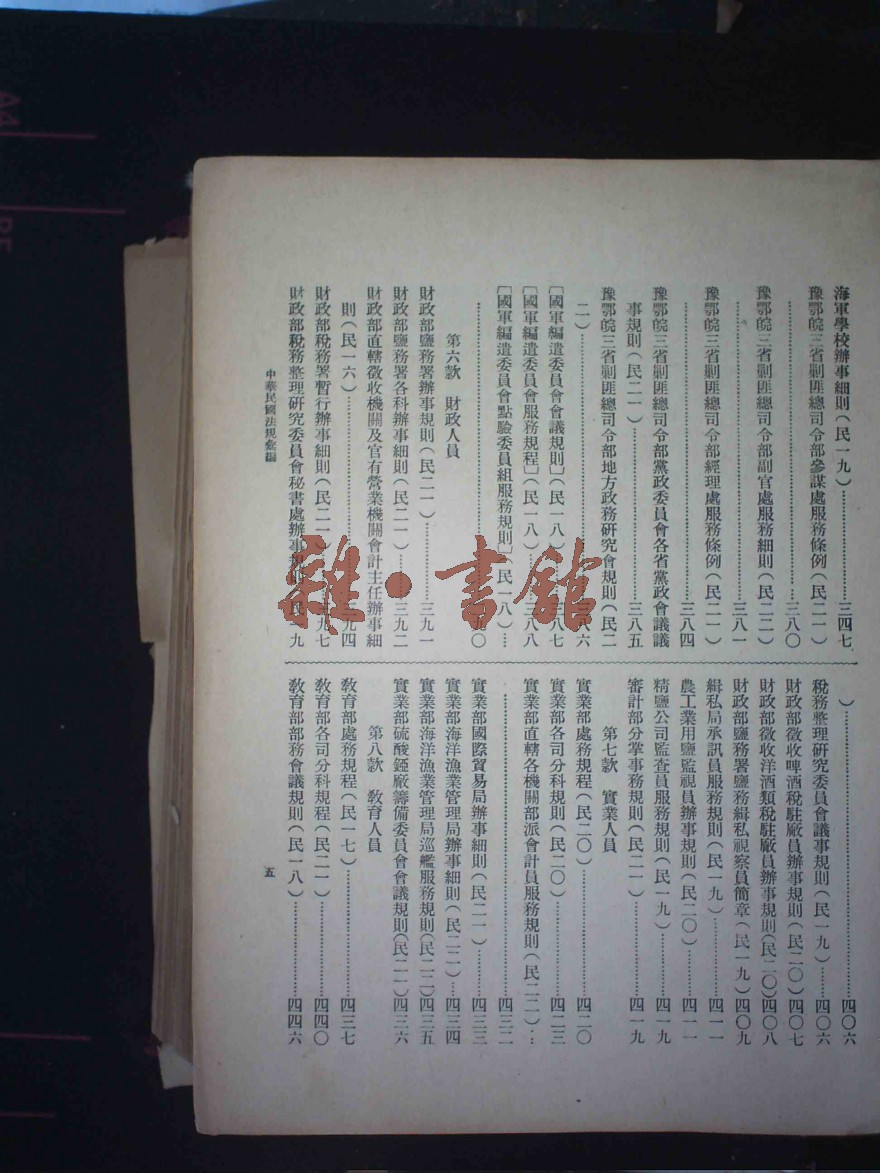 海軍學校辦事細則(民一九)……三四七
豫鄂皖三省剿匪總司令部參謀處服務條例(民二一)
……三八〇
豫鄂皖三省剿匪總司令部副官處服務細則(民二二)
……三八一
豫鄂皖三省剿匪總司令部經理處服務條例(民二一)
……三八四
豫鄂皖三省剿匪總司令部黨政委員會各省黨政會議議
事規則(民二一)……三八五
豫鄂皖三省剿匪總司令部地方政務研究會規則(民二
二)……三八六
[國軍編遣委員會會議規則](民一八)……三八七
[國軍編遣委員會服務規程](民一八)……三八八
[國軍編遣委員會點驗委員組服務規則](民一八)…
……三九〇
第六款 財政人員
財政部鹽務署辦事規則(民二一)……三九一
財政部鹽務署各科辦事細則(民二一)……三九二
財政部直轄徵收機關及官有營業機關會計主任辦事細
則(民一六)……三九四
財政部稅務署暫行辦事細則(民二一)……三九七
財政部稅務整理研究委員會秘書處辦事規則(民一九
)……四〇六
稅務整理研究委員會議事規則(民一九)……四〇六
財政部徵收啤酒稅駐廠員辦事規則(民二〇)四〇七
財政部徵收洋酒類稅駐廠員辦事規則(民二〇)四〇八
財政部鹽務署鹽務緝私視察員簡章(民一九)四〇九
緝私局承訊員服務規則(民一九)……四一一
農工業用鹽監視員辦事規則(民二〇)……四一一
精鹽公司監查員服務規則(民一九)……四一九
審計部分掌事務規則(民二一)……四一九
第七款 實業人員
實業部處務規程(民二〇)……四二〇
實業部各司分科規則(民二〇)……四二三
實業部直轄各機關部派會計員服務規則(民二二)…
……四三二
實業部國際貿易局辦事細則(民二一)……四三三
實業部海洋漁業管理局辦事細則(民二二)…四三四
實業部海洋漁業管理局巡艦服務規則(民二二)四三五
實業部硫酸錏廠籌備委員會會議規則(民二一)四三六
第八款 教育人員
教育部處務規程(民一七)……四三七
教育部各司分科規程(民二一)……四四〇
教育部部務會議規則(民一八)……四四六
中華民國法規彙編
五
雜·書館
A4